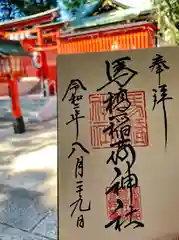 奉拝
馬橋稲荷神社
令和三年八月二十九日